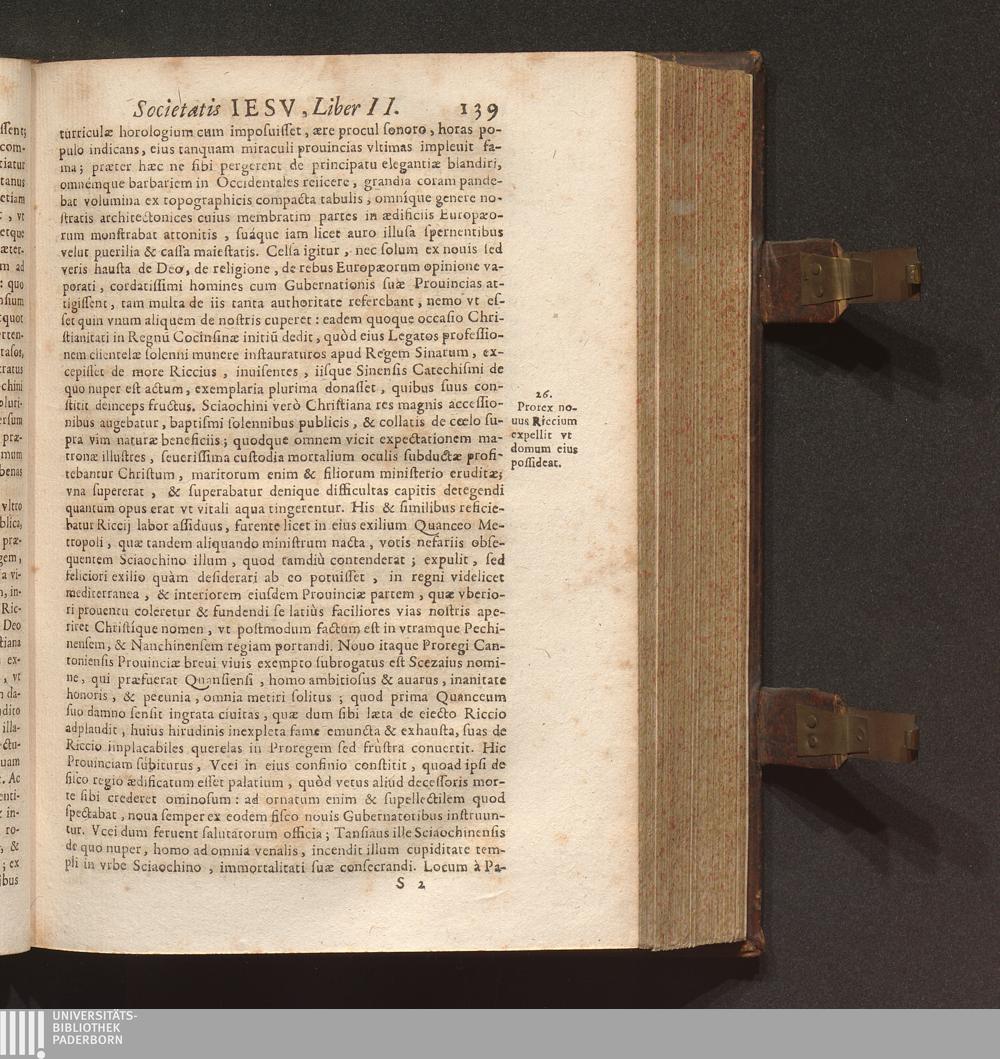 Societatis IESV, Liber II. 139
turriculæ horologium cum imposuisset, ære procul sonoro, horas po-
pulo indicans, eius tanquam miraculi prouincias vltimas impleuit fa-
ma; præter hæc ne sibi pergerent de principatu elegantiæ blandiri,
omnémque barbariem in Occidentales reiicere, grandia coram pande-
bat volumina ex topographicis compacta tabulis, omníque genere no-
stratis architectonices cuius membratim partes in ædificiis Europæo-
rum monstrabat attonitis, suáque iam licet auro illusa spernentibus
velut puerilia & cassa maiestatis. Celsa igitur, nec solum ex nouis sed
veris hausta de Deo, de religione, de rebus Europæorum opinione va-
porati, cordatissimi homines cum Gubernationis suæ Prouincias at-
tigissent, tam multa de iis tanta authoritate referebant, nemo vt es-
set quin vnum aliquem de nostris cuperet: eadem quoque occasio Chri-
stianitati in Regnū Cocinsinæ initiū dedit, quòd eius Legatos professio-
nem clientelæ solenni munere instauraturos apud Regem Sinarum, ex-
cepisset de more Riccius, inuisentes, iisque Sinensis Catechismi de
quo nuper est actum, exemplaria plurima donasset, quibus suus con-
stitit deinceps fructus. Sciaochini verò Christiana res magnis accessio-
nibus augebatur, baptismi solennibus publicis, & collatis de cœlo su-
pra vim naturæ beneficiis; quodque omnem vicit expectationem ma-
tronæ illustres, seuerissima custodia mortalium oculis subductæ profi-
tebantur Christum, maritorum enim & filiorum ministerio eruditæ;
vna supererat, & superabatur denique difficultas capitis detegendi
quantum opus erat vt vitali aqua tingerentur. His & similibus reficie-
batur Riccij labor assiduus, furente licet in eius exilium Quanceo Me-
tropoli, quæ tandem aliquando ministrum nacta, votis nefariis obse-
quentem Sciaochino illum, quod tamdiù contenderat; expulit, sed
feliciori exilio quàm desiderari ab eo potuisset, in regni videlicet
mediterranea, & interiorem eiusdem Prouinciæ partem, quæ vberio-
ri prouentu coleretur & fundendi se latiùs faciliores vias nostris ape-
riret Christíque nomen, vt postmodum factum est in vtramque Pechi-
nensem, & Nanchinensem regiam portandi. Nouo itaque Proregi Can-
toniensis Prouinciæ breui viuis exempto subrogatus est Scezaius nomi-
ne, qui præfuerat Quansiensi, homo ambitiosus & auarus, inanitate
honoris, & pecunia, omnia metiri solitus; quod prima Quanceum
suo damno sensit ingrata ciuitas, quæ dum sibi læta de eiecto Riccio
adplaudit, huius hirudinis inexpleta fame emuncta & exhausta, suas de
Riccio implacabiles querelas in Proregem sed frùstra conuertit. Hic
Prouinciam subiturus, Vcei in eius confinio constitit, quoad ipsi de
fisco regio ædificatum esset palatium, quòd vetus aliùd decessoris mor-
te sibi crederet ominosum: ad ornatum enim & supellectilem quod
spectabat, noua semper ex eodem fisco nouis Gubernatoribus instruun-
tur. Vcei dum feruent salutatorum officia; Tansiaus ille Sciaochinensis
de quo nuper, homo ad omnia venalis, incendit illum cupiditate tem-
pli in vrbe Sciaochino, immortalitati suæ consecrandi. Locum à Pa-
S 2
26.
Prorex no-
uus Riccium
expellit vt
domum eius
possideat.
UNIVERSITÄTS-
BIBLIOTHEK
PADERBORN